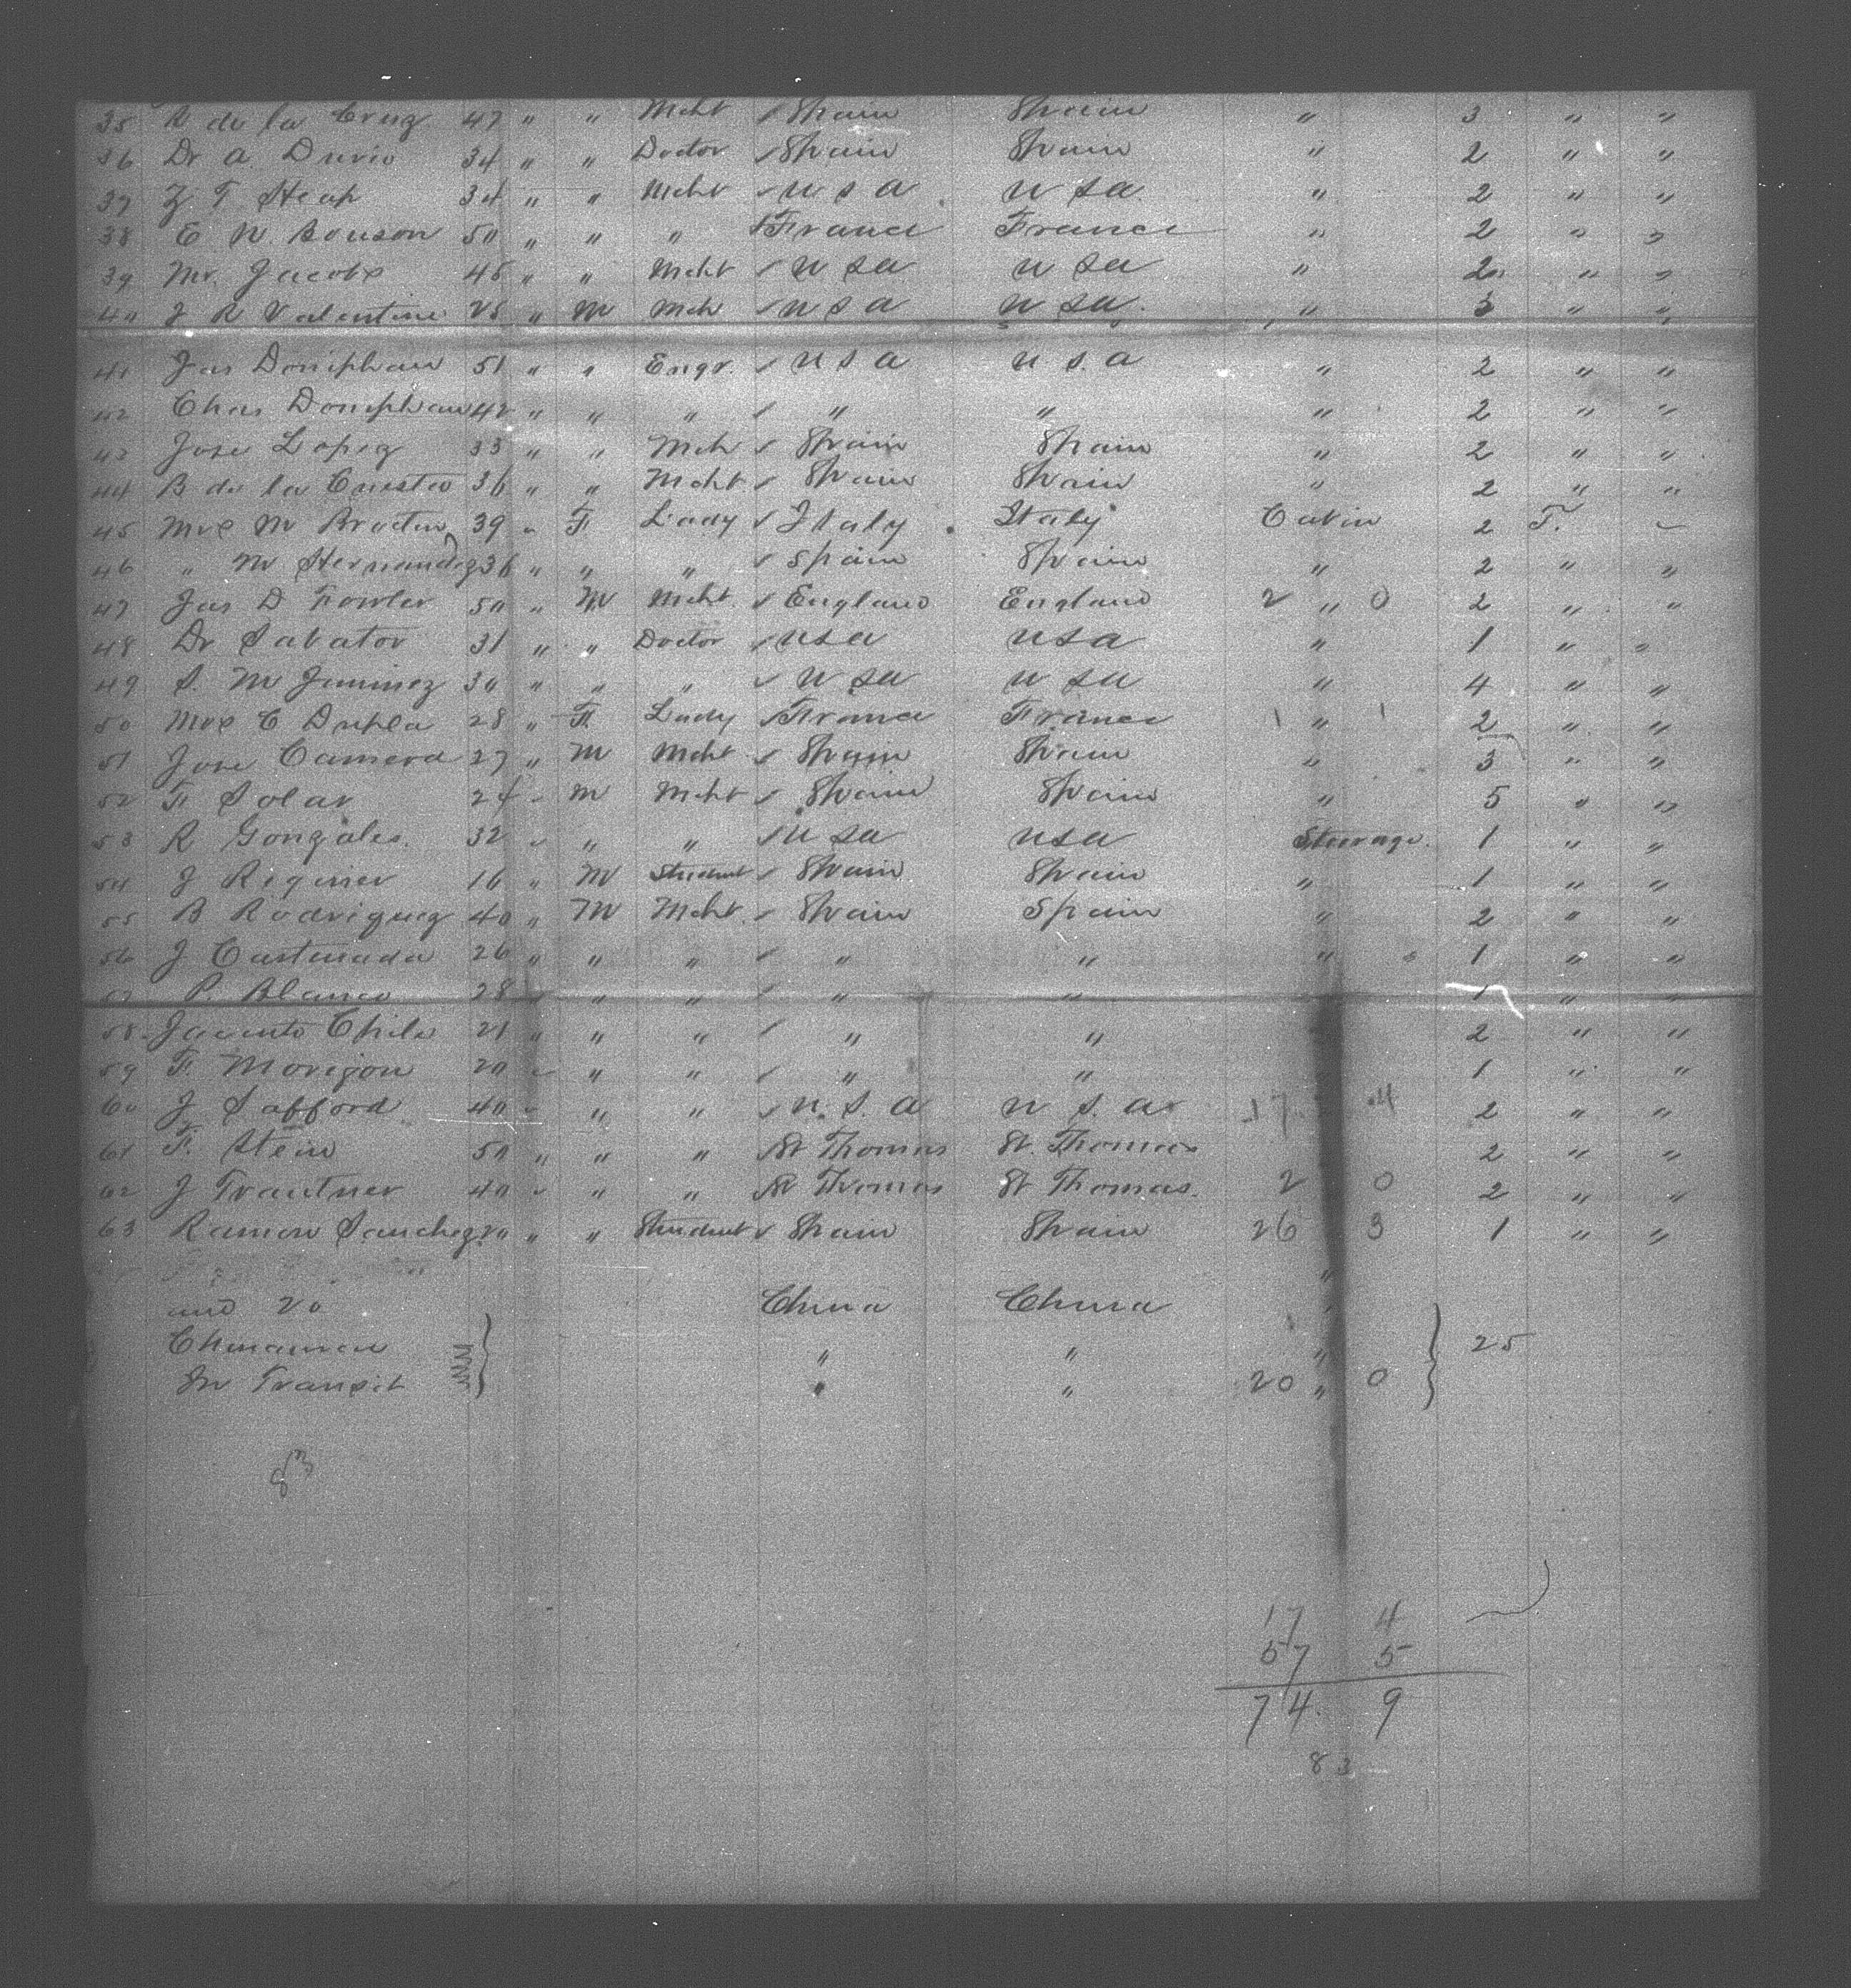 35 R de la Cruz 47 " " Mcht ✓ Spain Spain " 3 " "
36 Dr A. 34 " " Doctor ✓ Spain Spain " 2 " "
37 Z T Heap 34 " " Mcht ✓ U S A U S A. " 2 " "
38 E N. Bouson 50 " " " France France " 2 " "
39 Mr. Jacobs 45 " " Mcht ✓ U S A U S A " 2 " "
40 J R Valentine 25 " M Mch ✓ U S A U S A. " 3 " "
41 Jas Doniphan 51 " " Engr. ✓ U S A U S. A " 2 " "
42 Chas Doniphan 42 " " " ✓ " " " 2 " "
43 Jose Lopez 33 " " Mch ✓ Spain Spain " 2 " "
44 B de la Cuesta 36 " " Mcht. ✓ Spain Spain " 2 " "
45 Mrs M 39 " F Lady ✓ Italy Italy Cabin 2 T. "
46 " M Hernandez 36 " " " ✓ Spain Spain " 2 " "
47 Jas D Fowler 50 " M Mcht. ✓ England England 2 " 0 2 " "
48 Dr Sabator 31 " " Doctor ✓ U S A U S A " 1 " "
49 S. M Juminez 30 " " " ✓ U S A U S A " 4 " "
50 Mrs C Dupla 28 " F Lady ✓ France France 1 " 1 2 " "
51 Jose Camera 27 " M Mcht ✓ Spain Spain " 3 " "
52 F Solar 24 " M Mcht ✓ Spain Spain " 5 " "
53 R Gonzales. 32 " " " ✓ U S A U S A Steerage. 1 " "
54 J 16 " M Student ✓ Spain Spain " 1 " "
55 B Rodriguez 40 " M Mcht. ✓ Spain Spain " 2 " "
56 J Castenada 26 " " " ✓ " " " 1 " "
57 P. Blanco 28 " " " ✓ " " 1 " "
58. Jacinto Chile 21 " " " ✓ " " 2 " "
59 F. Morijon 20 " " " ✓ " " 1 " "
60 J Safford 40 " " " ✓ U. S. A U S. A 17 4 2 " "
61 F. Stein 50 " " " ✓ St Thomas St. Thomas 2 " "
62 J Trautner 40 " " " ✓ St Thomas St Thomas. 2 0 2 " "
63 Ramon Sanchez 20 " " Student ✓ Spain Spain 26 3 1 " "
"
and 20 China China "
Chinamen " " " 25
In Transit " " 20 " 0
83
17 4
57 5
74. 9
83